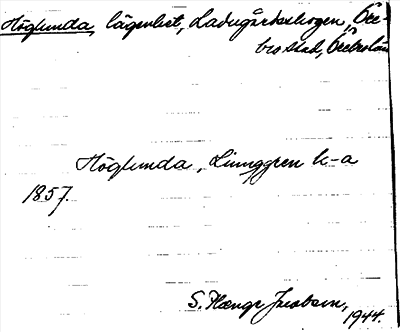 Höglunda, lägenhet, Ladugårdsskogen, Öre-
bro stad, Örebro län
Höglunda, Ljunggren k-a
1857.
S. Hænge Jacobsen,
1944.